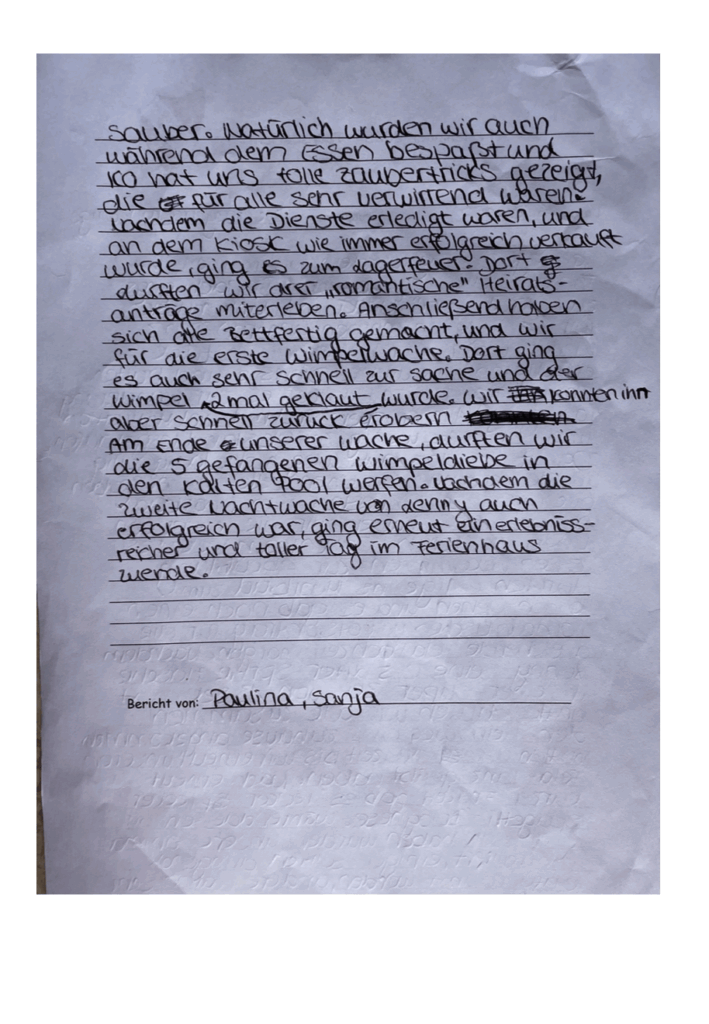 sauber. Natürlich wurden wir auch
während dem Essen bespaßt und
Ko hat uns tolle Zaubertricks gezeigt,
die für alle sehr verwirrend waren.
Nachdem die Dienste erledigt waren, und
an dem Kiosk wie immer erfolgreich verkauft
wurde, ging es zum Lagerfeuer. Dort
durften wir drei „romantische" Heirats-
anträge miterleben. Anschließend haben
sich alle Bettfertig gemacht, und wir
für die erste Wimpelwache. Dort ging
es auch sehr schnell zur sache und der
Wimpel 2mal geklaut wurde. Wir konnten ihn
aber schnell zurück erobern
Am Ende unserer wache, durften wir
die 5 gefangenen Wimpeldiebe in
den Kalten Pool werfen. Nachdem die
zweite Nachtwache von Lenny auch
erfolgreich war, ging erneut ein erlebniss-
reicher und toller Tag im Ferienhaus
zuende.
Bericht von: Paulina, Sanja